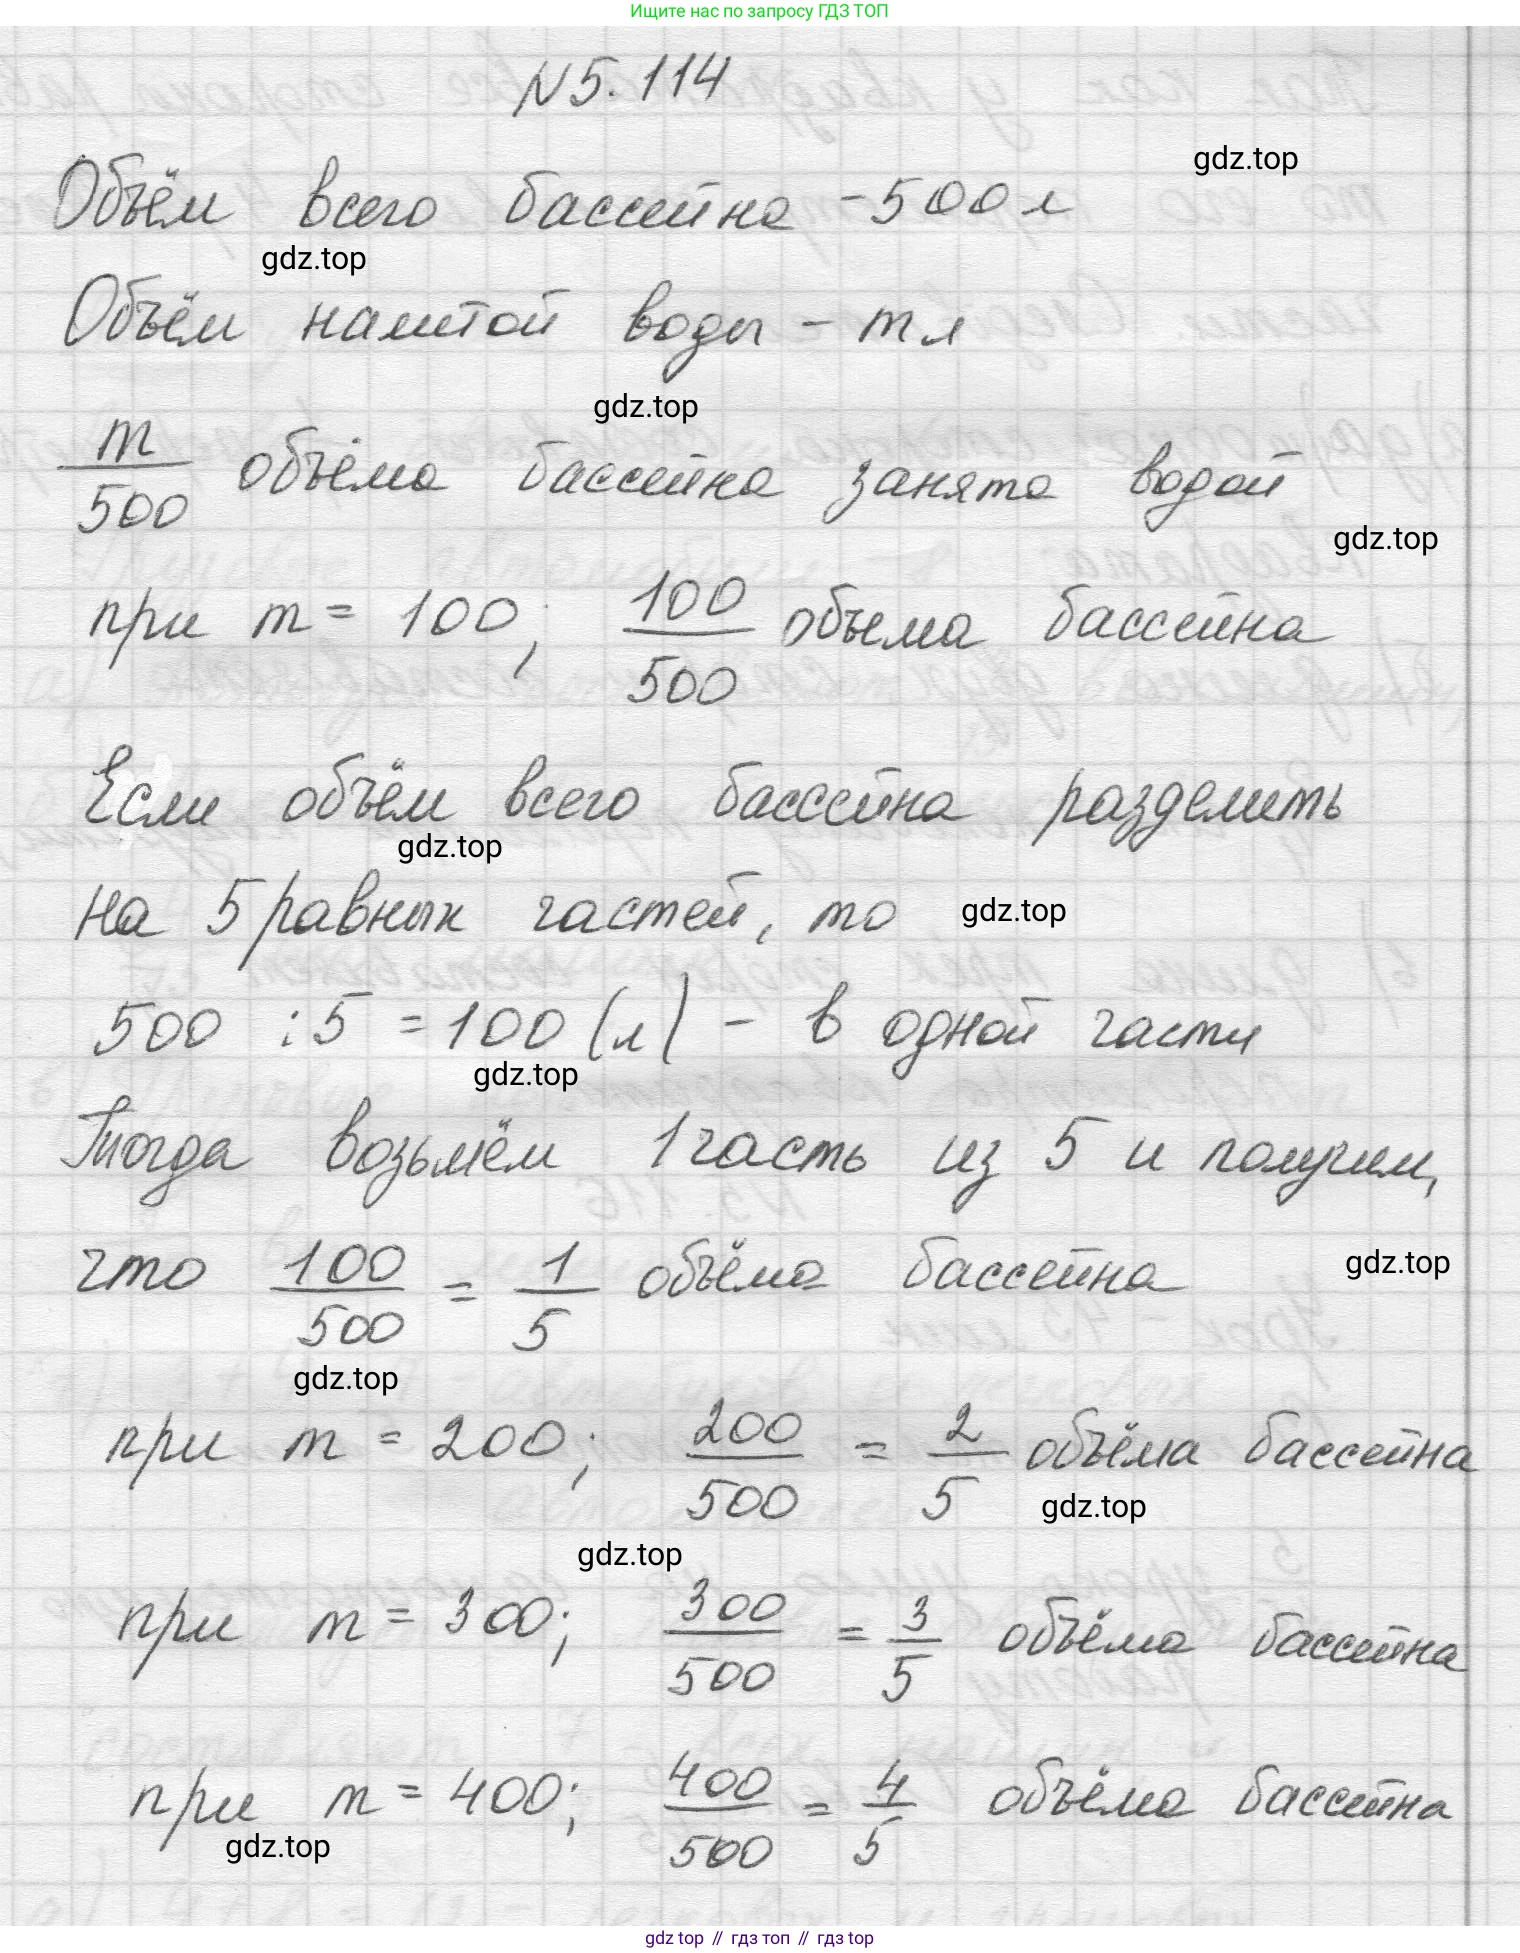 Ищите нас по запросу ГДЗ ТОП
N 5. 114
gdz.top
Объём всего бассейна - 500 л
gdz.top
Объём налитой воды - m л
gdz.top
m/500 объёма бассейна занято водой
gdz.top
при m = 100; 100/500 объема бассейна
Если объём всего бассейна разделить
gdz.top
на 5 равных частей, то
gdz.top
500 : 5 = 100 (л) - в одной части
gdz.top
Тогда возьмём 1 часть из 5 и получим,
что 100/500 = 1/5 объёма бассейна
gdz.top
gdz.top
при m = 200; 200/500 = 2/5 объёма бассейна
gdz.top
gdz.top
при m = 300; 300/500 = 3/5 объёма бассейна
при m = 400; 400/500 = 4/5 объёма бассейна
gdz.top
gdz top // гдз топ // гдз top